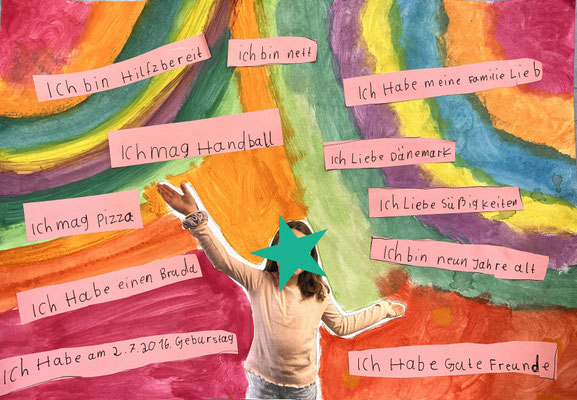 Ich bin Hilfzbereit
Ich bin nett
Ich Habe meine Familie Lieb
Ich mag Handball
Ich Liebe Dänemark
Ich mag Pizza
Ich Liebe Süßigkeiten
Ich bin neun Jahre alt
Ich Habe einen Brudd
Ich Habe am 2.7.2016. Geburstag
Ich Habe Gute Freunde